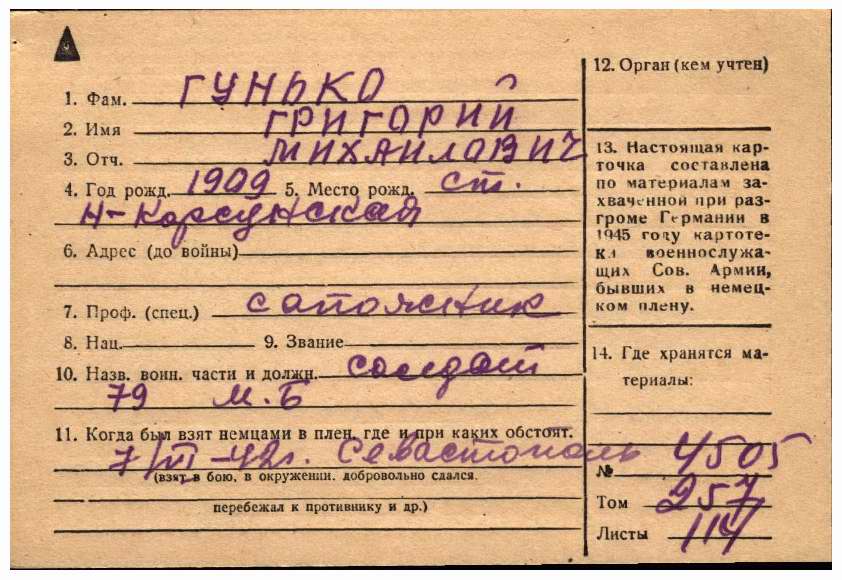 1. Фам. ГУНЬКО
2. Имя ГРИГОРИЙ
3. Отч. МИХАИЛОВИЧ
4. Год рожд. 1909 5. Место рожд. ст.
Н-Корсунская
6. Адрес (до войны)
7. Проф. (спец.) сапожник
8. Нац. 9. Звание
10. Назв. воин. части и должн. солдат
79 М.Б
11. Когда был взят немцами в плен, где и при каких обстоят.
7/VII-42г. Севастополь
(взят в бою, в окружении, добровольно сдался,
перебежал к противнику и др.)
12. Орган (кем учтен)
13. Настоящая кар-
точка составлена
по материалам за-
хваченной при раз-
громе Германии в
1945 году картоте-
ки военнослужа-
щих Сов. Армии,
бывших в немец-
ком плену.
14. Где хранятся ма-
териалы:
№ 4505
Том 257
Листы 114